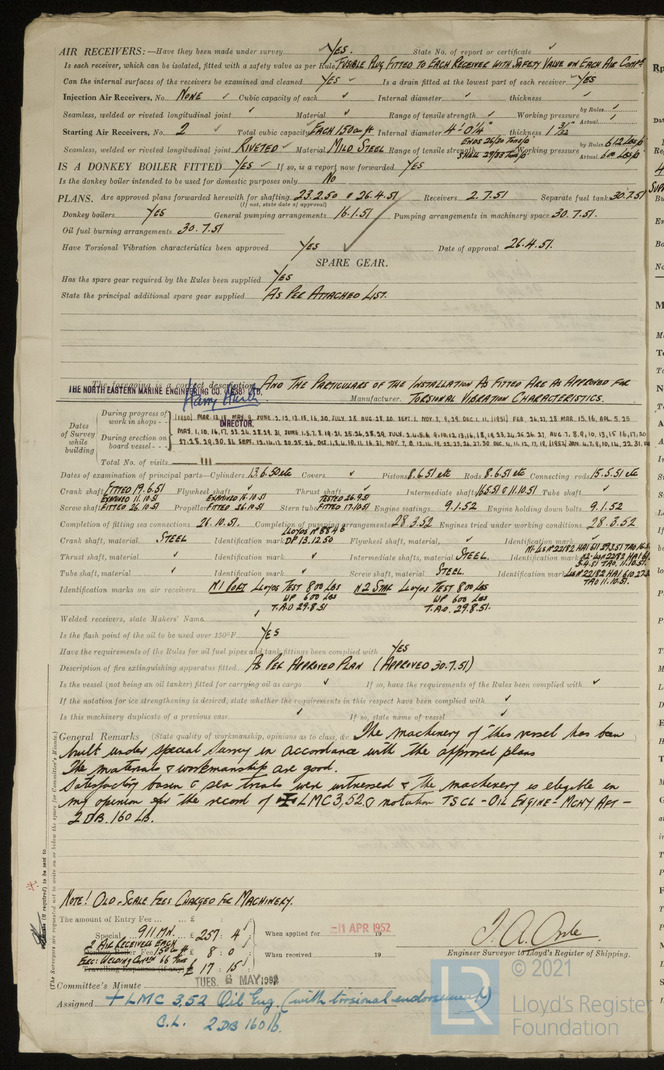 AIR RECEIVERS:—Have they been made under survey YES. State No. of report or certificate ✓
Is each receiver, which can be isolated, fitted with a safety valve as per Rule FUSIBLE PLUG FITTED TO EACH RECEIVER WITH SAFETY VALVE ON EACH AIR COMPR
Can the internal surfaces of the receivers be examined and cleaned YES ✓ Is a drain fitted at the lowest part of each receiver YES
Injection Air Receivers, No. NONE ✓ Cubic capacity of each ✓ Internal diameter ✓ thickness ✓
Seamless, welded or riveted longitudinal joint ✓ Material ✓ Range of tensile strength ✓ Working pressure by Rules ✓ Actual ✓
Starting Air Receivers, No. 2 ✓ Total cubic capacity EACH 150 cu ft Internal diameter 4'-0¼" thickness 1 3/32"
Seamless, welded or riveted longitudinal joint RIVETED ✓ Material MILD STEEL Range of tensile strength ENDS 26/30 TONS/□" SHELL 29/33 TONS/□" Working pressure by Rules 612 LBS/□" Actual 600 LBS/□"
IS A DONKEY BOILER FITTED YES ✓ If so, is a report now forwarded YES
Is the donkey boiler intended to be used for domestic purposes only NO
PLANS. Are approved plans forwarded herewith for shafting 23.2.50 & 26.4.51 Receivers 2.7.51 Separate fuel tanks 30.7.51
(If not, state date of approval)
Donkey boilers YES General pumping arrangements 16.1.51 Pumping arrangements in machinery space 30.7.51.
Oil fuel burning arrangements 30.7.51
Have Torsional Vibration characteristics been approved YES Date of approval 26.4.51.
SPARE GEAR.
Has the spare gear required by the Rules been supplied YES
State the principal additional spare gear supplied AS PER ATTACHED LIST.
The foregoing is a correct description, AND THE PARTICULARS OF THE INSTALLATION AS FITTED ARE AS APPROVED FOR
THE NORTH EASTERN MARINE ENGINEERING CO. (1938) LTD. Manufacturer. TORSIONAL VIBRATION CHARACTERISTICS.
DIRECTOR.
Dates of Survey while building
During progress of work in shops - -
During erection on board vessel - - -
Total No. of visits 111
Dates of examination of principal parts—Cylinders 13.6.51 etc Covers ✓ Pistons 8.6.51 etc Rods 8.6.51 etc Connecting rods 15.5.51 etc
Crank shaft FITTED 19.6.51 Flywheel shaft ✓ Thrust shaft ✓ Intermediate shafts 16.5.51 & 11.10.51 Tube shaft ✓
Screw shaft FITTED 26.10.51 Propeller FITTED 26.10.51 Stern tube FITTED 17.10.51 Engine seatings 9.1.52 Engine holding down bolts 9.1.52
Completion of fitting sea connections 26.10.51. Completion of pumping arrangements 28.3.52 Engines tried under working conditions 28.3.52
Crank shaft, material STEEL Identification mark LLOYDS Nº 8846 DP 13.12.50 Flywheel shaft, material ✓ Identification mark ✓
Thrust shaft, material ✓ Identification mark ✓ Intermediate shafts, material STEEL Identification marks
Tube shaft, material ✓ Identification mark ✓ Screw shaft, material STEEL Identification mark
Identification marks on air receivers Nº1 PORT LLOYDS TEST 800 LBS Nº2 STAR LLOYDS TEST 800 LBS
WP 600 LBS WP 600 LBS
T.A.O 29.8.51 T.A.O. 29.8.51.
Welded receivers, state Makers' Name
Is the flash point of the oil to be used over 150°F. YES
Have the requirements of the Rules for oil fuel pipes and tank fittings been complied with YES
Description of fire extinguishing apparatus fitted AS PER APPROVED PLAN (APPROVED 30.7.51)
Is the vessel (not being an oil tanker) fitted for carrying oil as cargo ✓ If so, have the requirements of the Rules been complied with ✓
If the notation for ice strengthening is desired, state whether the requirements in this respect have been complied with ✓
Is this machinery duplicate of a previous case ✓ If so, state name of vessel ✓
General Remarks (State quality of workmanship, opinions as to class, &c. The machinery of this vessel has been
built under special survey in accordance with the approved plans
The materials & workmanship are good.
Satisfactory basin & sea trials were witnessed & the machinery is elegible in
my opinion for the record of ✠ LMC 3,52 & notation TSCL - OIL ENGINE - MCHY AFT -
2 DB. 160 LB.
NOTE! OLD SCALE FEES CHARGED FOR MACHINERY.
The amount of Entry Fee ... £ : :
Special 911 MN. ... £ 257 : 4 : When applied for -1 APR 1952 19
2 AIR RECEIVERS EACH 150 cu ft £ 8 : 0 : When received 19
£ 17 : 15 :
Engineer Surveyor to Lloyd's Register of Shipping.
Committee's Minute TUES. 6 MAY 1952
Assigned + LMC 3.52 Oil Eng. (with torsional endorsement)
C.L. 2 DB 160 lb.
(The Surveyors are requested not to write on or below the space for Committee's Minute.)
© 2021
Lloyd's Register
Foundation